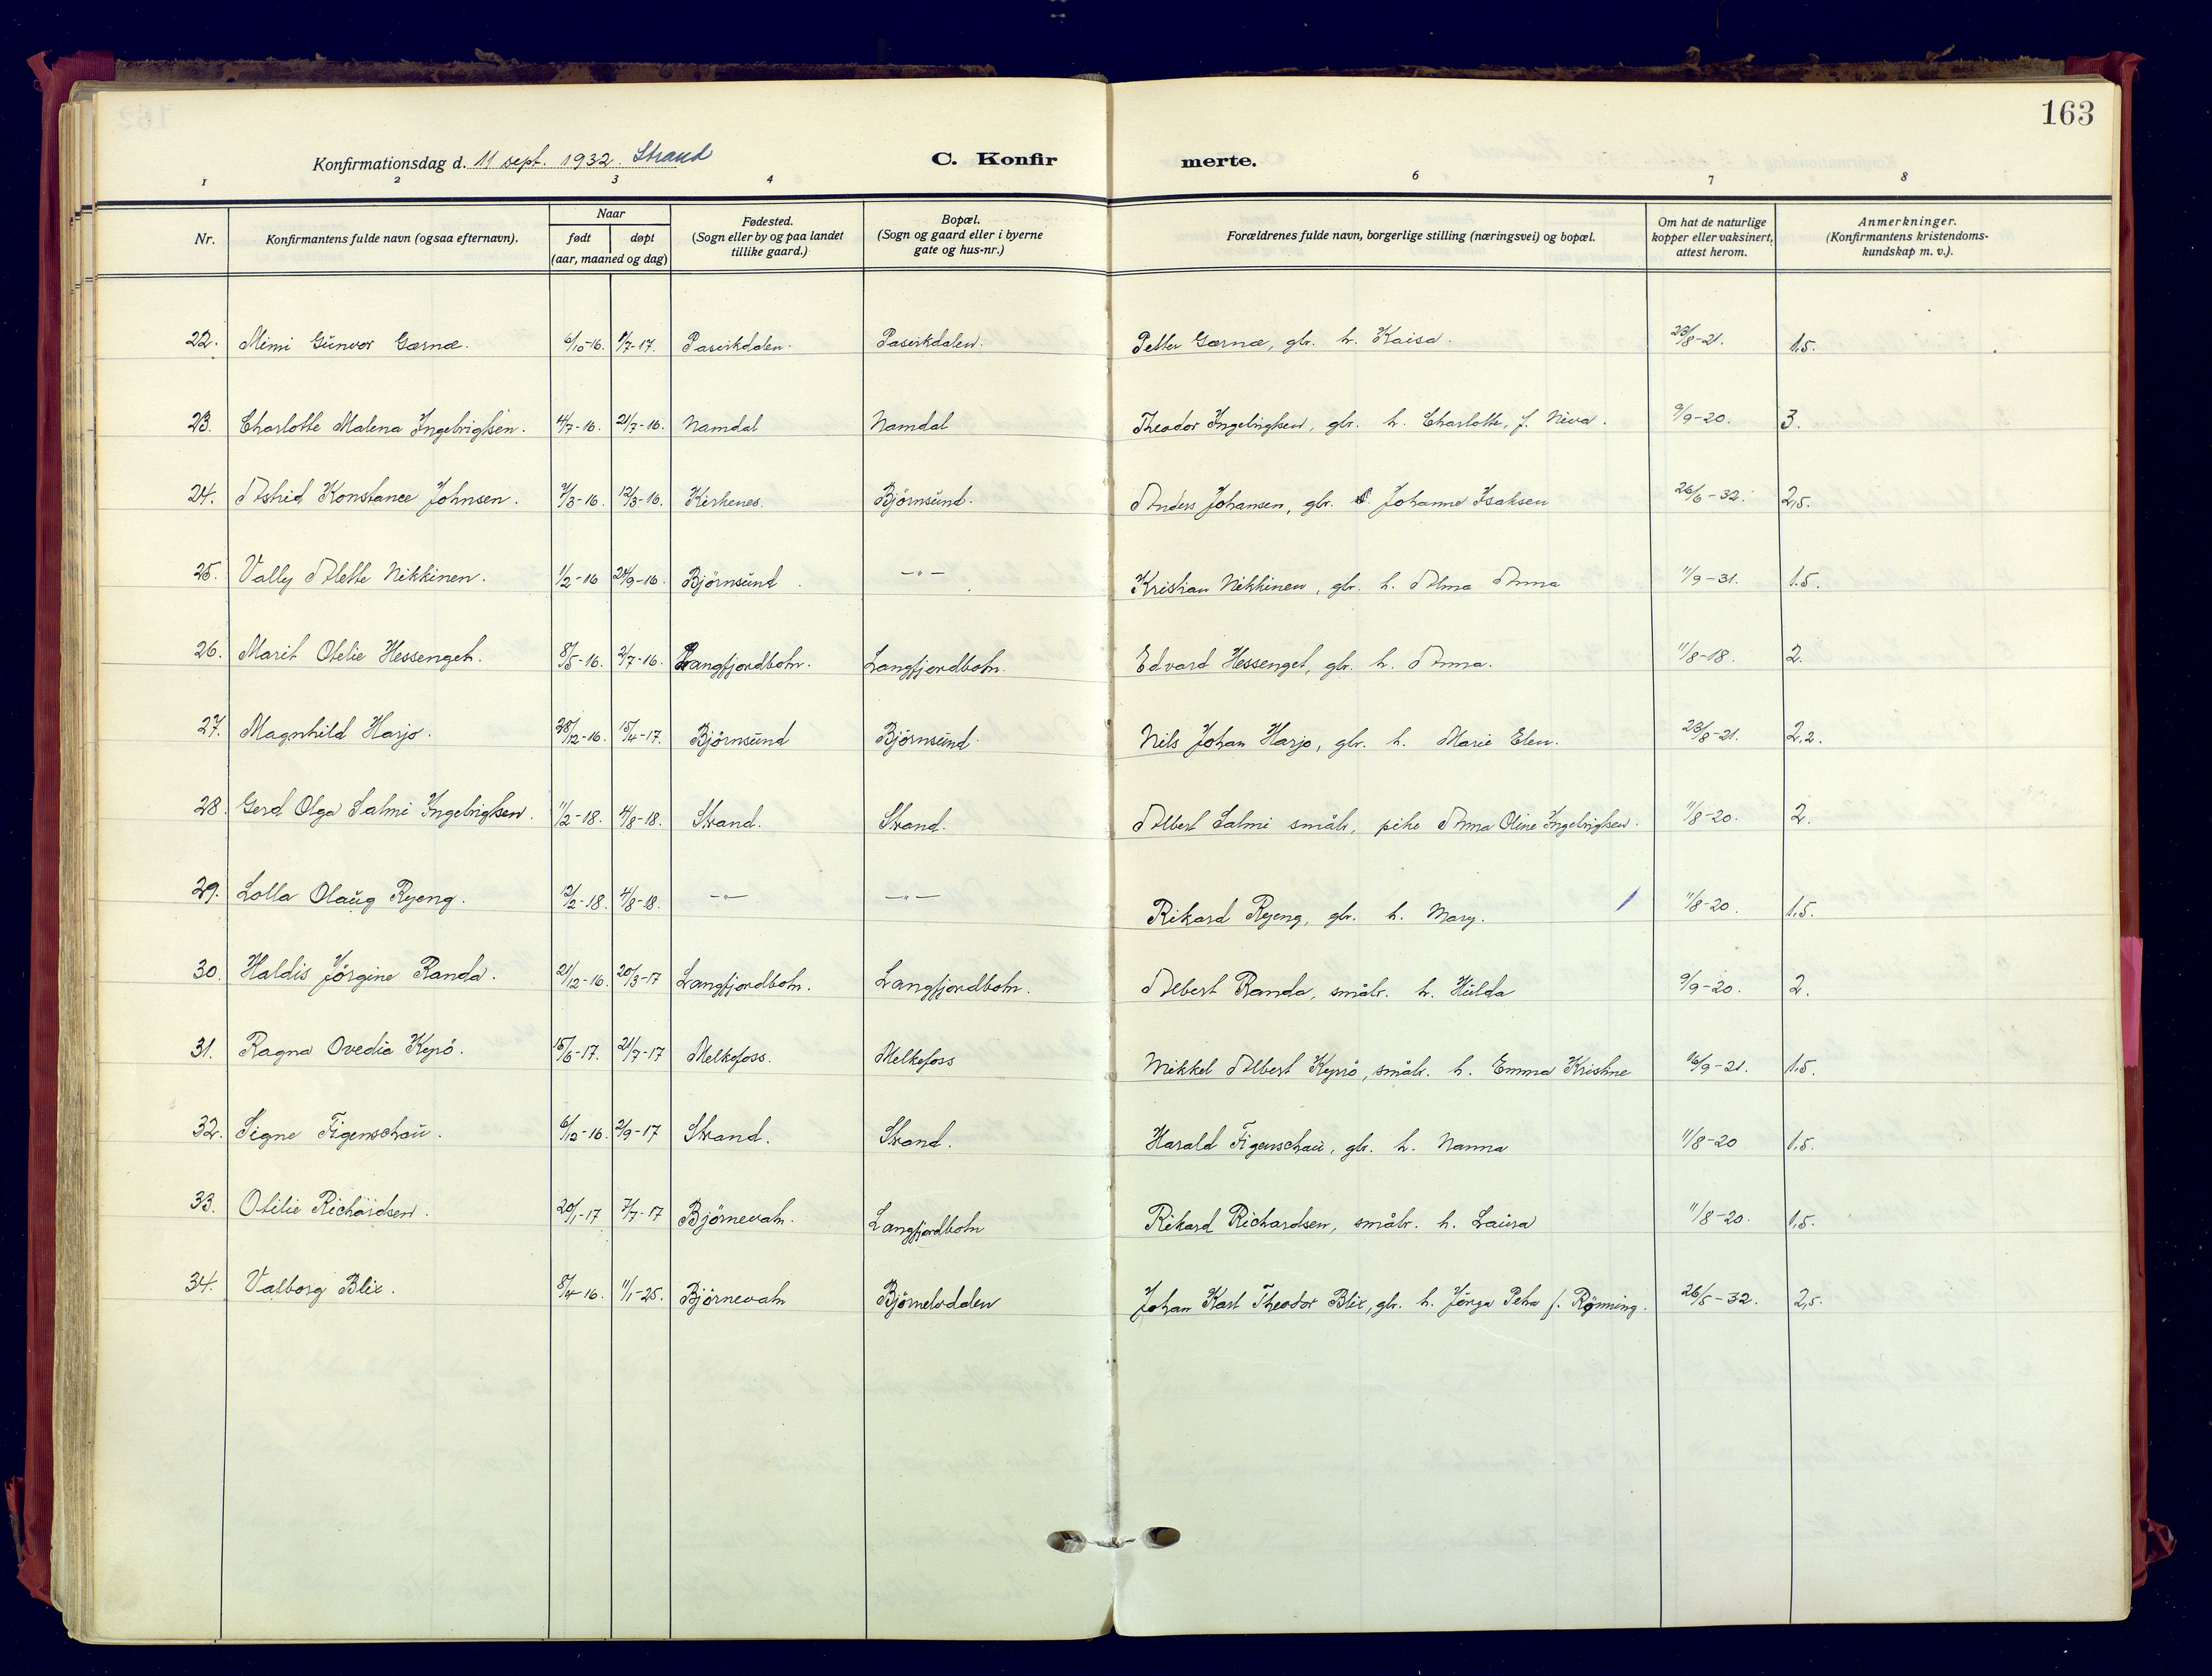 163
Konfirmationsdag d. 11 sept. 1932. Strand C. Konfir merte.
1 2 3 4 6 7 8
Nr. Konfirmantens fulde navn (ogsaa efternavn). Naar født døpt (aar, maaned og dag) Fødested. (Sogn eller by og paa landet tillike gaard.) Bopæl. (Sogn og gaard eller i byerne gate og hus-nr.) Forældrenes fulde navn, borgerlige stilling (næringsvei) og bopæl. Om hat de naturlige kopper eller vaksinert, attest herom. Anmerkninger. (Konfirmantens kristendoms- kundskap m. v.).
22. Mimi Gunvor Gærnæ. 6/10-16. /7-17. Pasvikdalen. Pasvikdalen. Petter Gærnæ, gbr. h. Kaisa. 23/8-21. 1.5.
23. Charlotte Malena Ingebrigtsen. 4/7-16. 21/7-16. Namdal Namdal Theodor Ingebrigtsen, gbr. h. Charlotte, f. Niva. 9/9-20. 3.
24. Astrid Konstance Johnsen. /3-16. 12/3-16. Kirkenes. Björnsund. Anders Johansen, gbr. Johanne Isaksen 26/6-32. 2,5.
25. Vally Alette Nikkinen. 1/2-16 24/9-16. Björnsund. -„- Kristian Nikkinen, gbr. h. Alma Anna 11/9-31. 1.5.
26. Marit Otelie Hessenget. 8/5-16. 2/7-16. Langfjordbotn. Langfjordbotn. Edvard Hessenget, gbr. h. Anna. 11/8-18. 2.
27. Magnhild Harjo. 28/12-16. 15/4-17. Björnsund Björnsund. Nils Johan Harjo, gbr. h. Marie Elen. 23/8-21. 2,2.
28. Gerd Olga Salmi Ingebrigtsen. 11/2-18. 4/8-18. Strand. Strand. Albert Salmi småbr, pike Anna Oline Ingebrigtsen. 11/8-20. 2.
29. Lolla Olaug Ryeng. 12/2-18. 4/8-18. -„- -„- Rikard Ryeng, gbr. h. Mary. 11/8-20. 1,5.
30. Haldis Jörgine Randa. 21/12-16. 20/3-17 Langfjordbotn. Langfjordbotn. Albert Randa, småbr. h. Hulda 9/9-20. 2.
31. Ragna Ovedia Kyrö. 15/6-17. 21/7-17 Melkefoss. Melkefoss Mikkel Albert Kyrö, småbr. h. Emma Kristine 16/9-21. 1.5.
32. Signe Figenschau. 6/12-16. 2/9-17 Strand. Strand. Harald Figenschau, gbr. h. Nanna 11/8-20 1.5.
33. Otilie Richardsen. 20/1-17 7/7-17 Björnevatn. Langfjordbotn Rikard Richardsen, småbr. h. Laura 11/8-20. 1,5.
34. Valborg Blix. 8/4-16. 11/1-25. Björnevatn Björnelvdalen Johan Karl Theodor Blix, gbr. h. Jörga Petra f. Rønning. 26/5-32. 2,5.